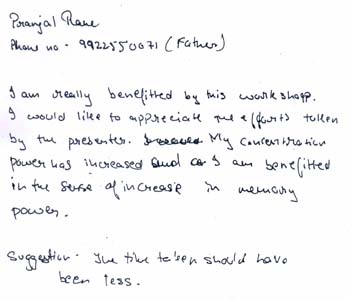 Pranjal Rane
Phone no - 9922550071 (Father)
I am really benefitted by this workshop.
I would like to appreciate the efforts taken
by the presenter. My concentration
power has increased and I am benefitted
in the sense of increase in memory
power.
Suggestion - The time taken should have
been less.